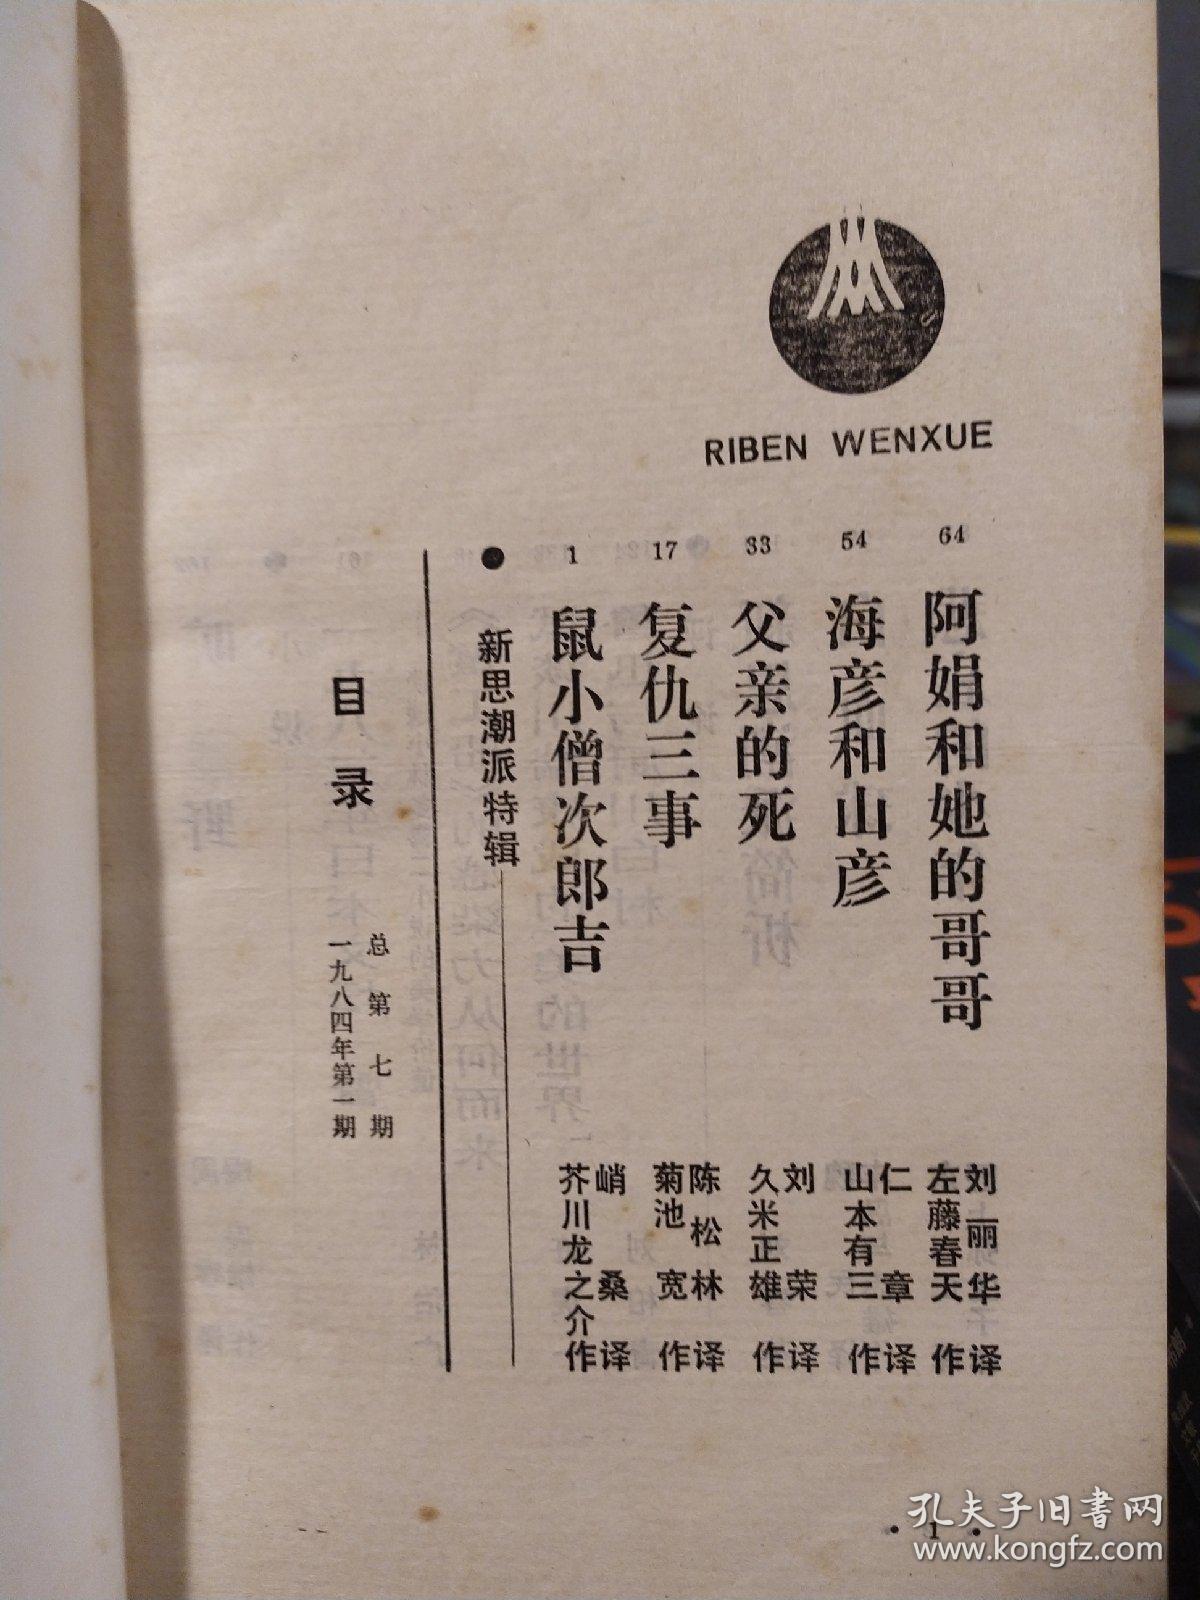 RIBEN WENXUE
目录
总第七期
一九八四年第一期
● 新思潮派特辑
1 鼠小僧次郎吉
芥川龙之介 作
峭桑 译
17 复仇三事
菊池宽 作
陈松林 译
33 父亲的死
久米正雄 作
刘荣 译
54 海彦和山彦
山本有三 作
仁章 译
64 阿娟和她的哥哥
左藤春天 作
刘丽华 译
·1·
孔夫子旧书网
www.kongfz.com